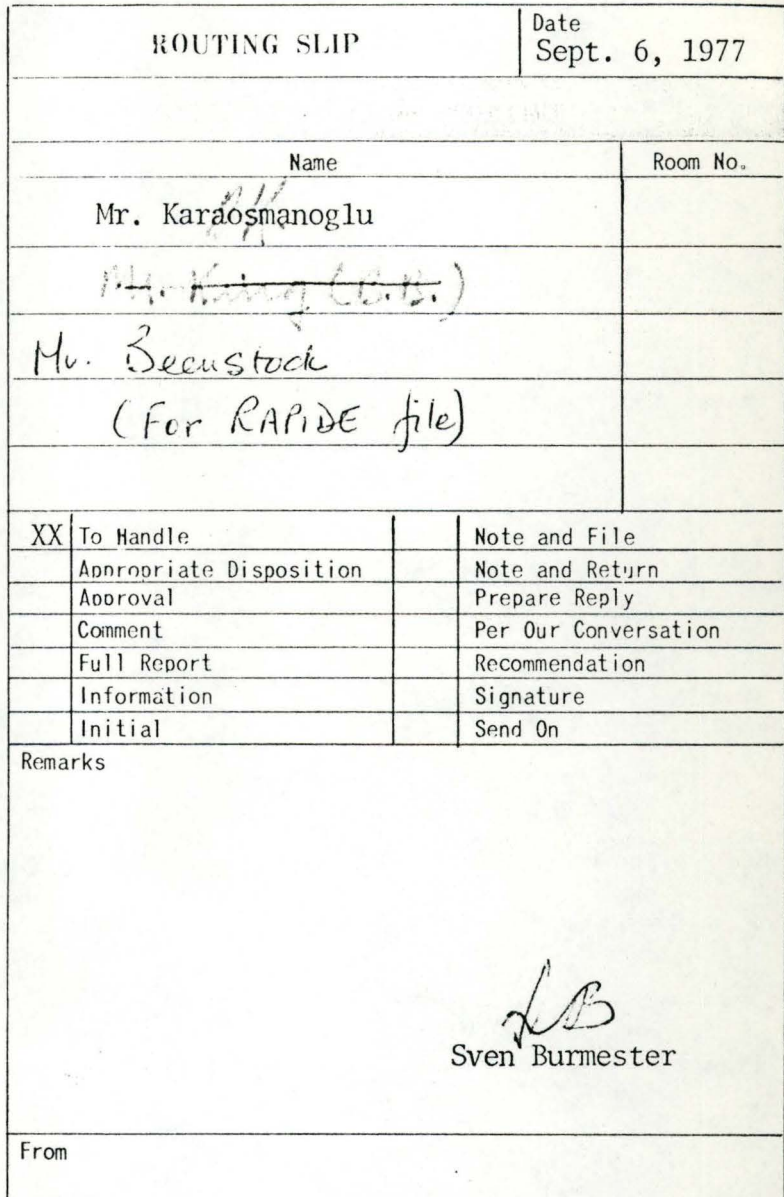 ROUTING SLIP
Date
Sept. 6, 1977
Name
Room No.
Mr. Karaosmanoglu
Mr. King (B.B.)
Mr. Beenstock
(For RAPIDE file)
XX To Handle
Note and File
Appropriate Disposition
Note and Return
Approval
Prepare Reply
Comment
Per Our Conversation
Full Report
Recommendation
Information
Signature
Initial
Send On
Remarks
SB
Sven Burmester
From